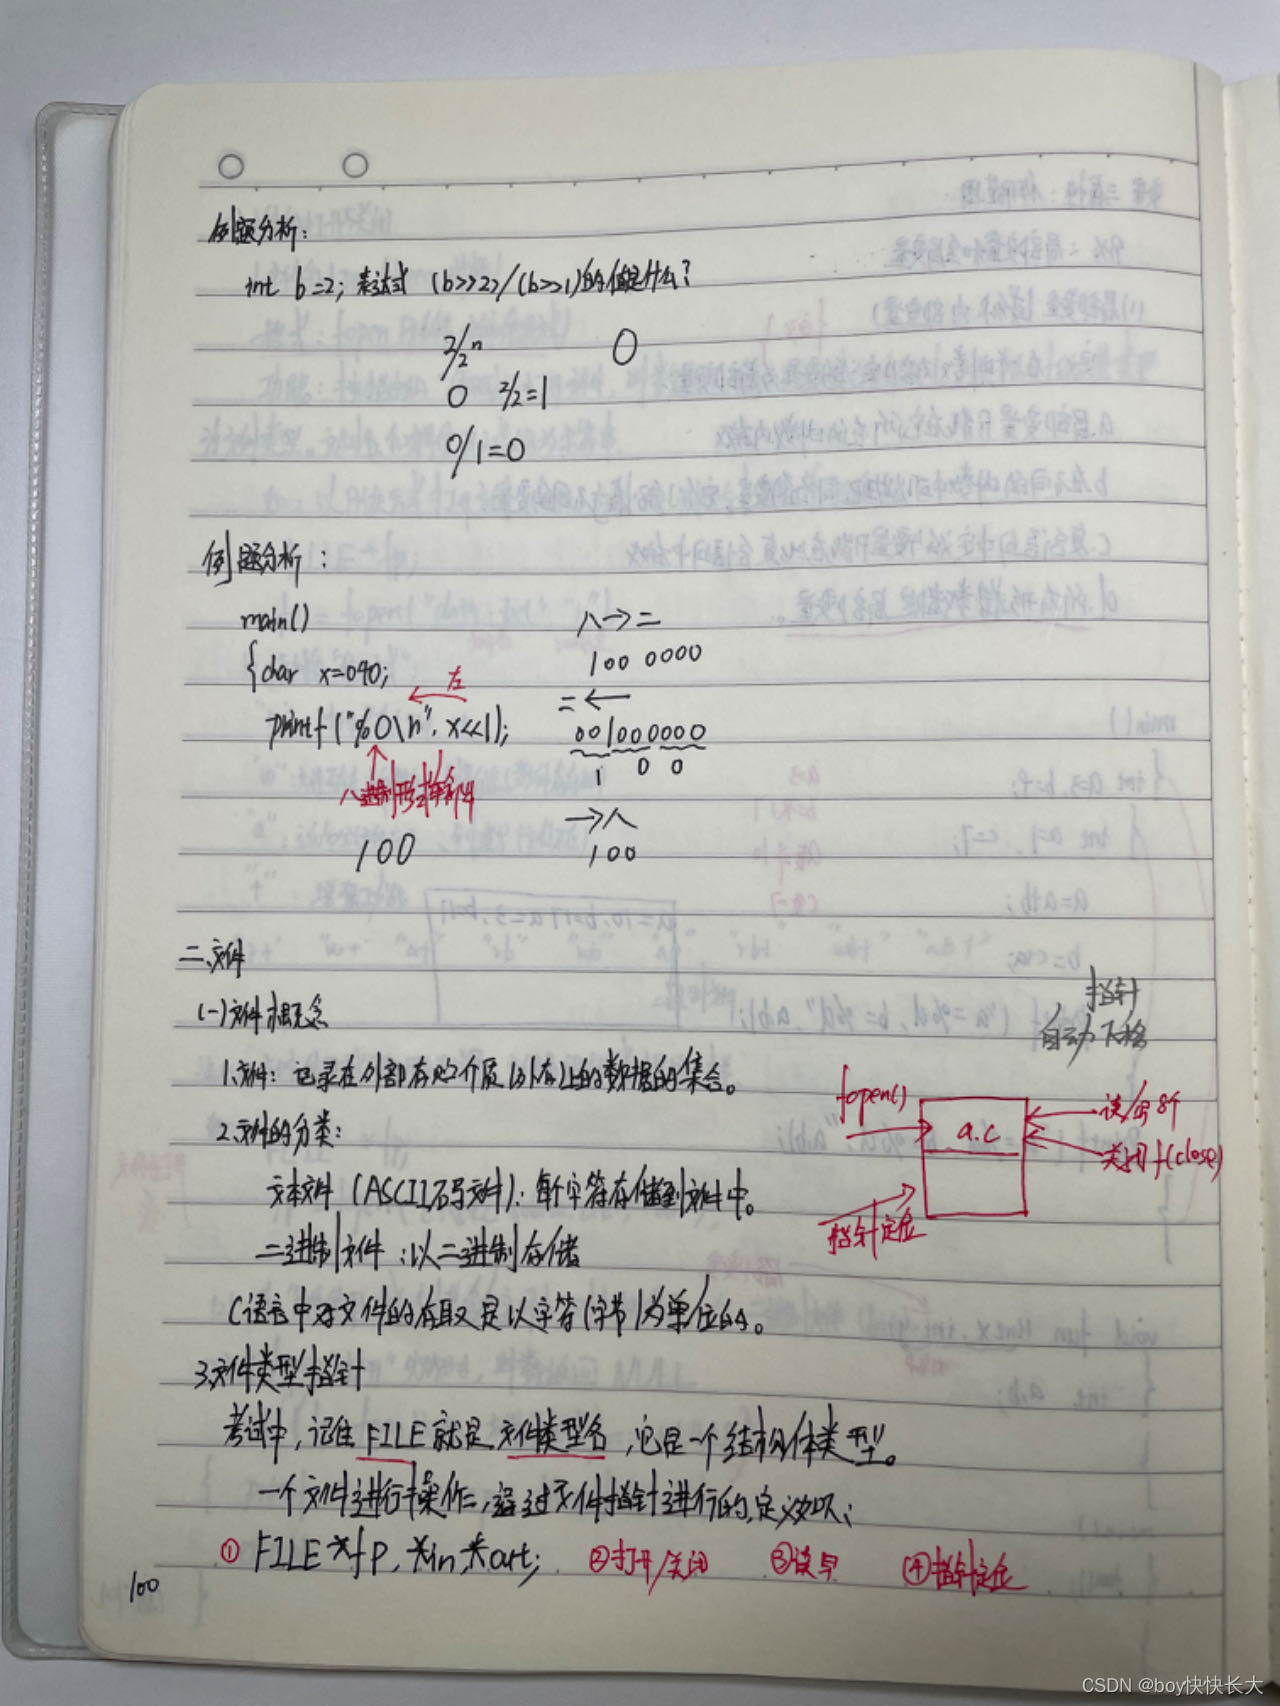 例题分析：
int b=2; 表达式 (b>>2)/(b>>1)的值是什么？
2/2ⁿ 0
0 2/2=1
0/1=0
例题分析：
main() 八→二
{char x=040; 100 0000
左 =←
printf("%O\n", x<<1); 001000000
1 0 0
八进制形式输出 →八
100 100
二.文件
(一)文件概念
指针
自动下移
1.文件：记录在外部存贮介质(外存)上的数据的集合。
fopen() a.c 读/写
2.文件的分类： 关闭f(close)
文本文件 (ASCII码文件)：每个字符存储到文件中。
指针定位
二进制文件：以二进制存储
C语言中对文件的存取是以字符(字节)为单位的。
3.文件类型指针
考试中，记住FILE就是文件类型名，它是一个结构体类型。
一个文件进行操作，通过文件指针进行的,定义如以：
① FILE *fp, *in,*out; ②打开/关闭 ③读写 ④指针定位
100
CSDN @boy快快长大